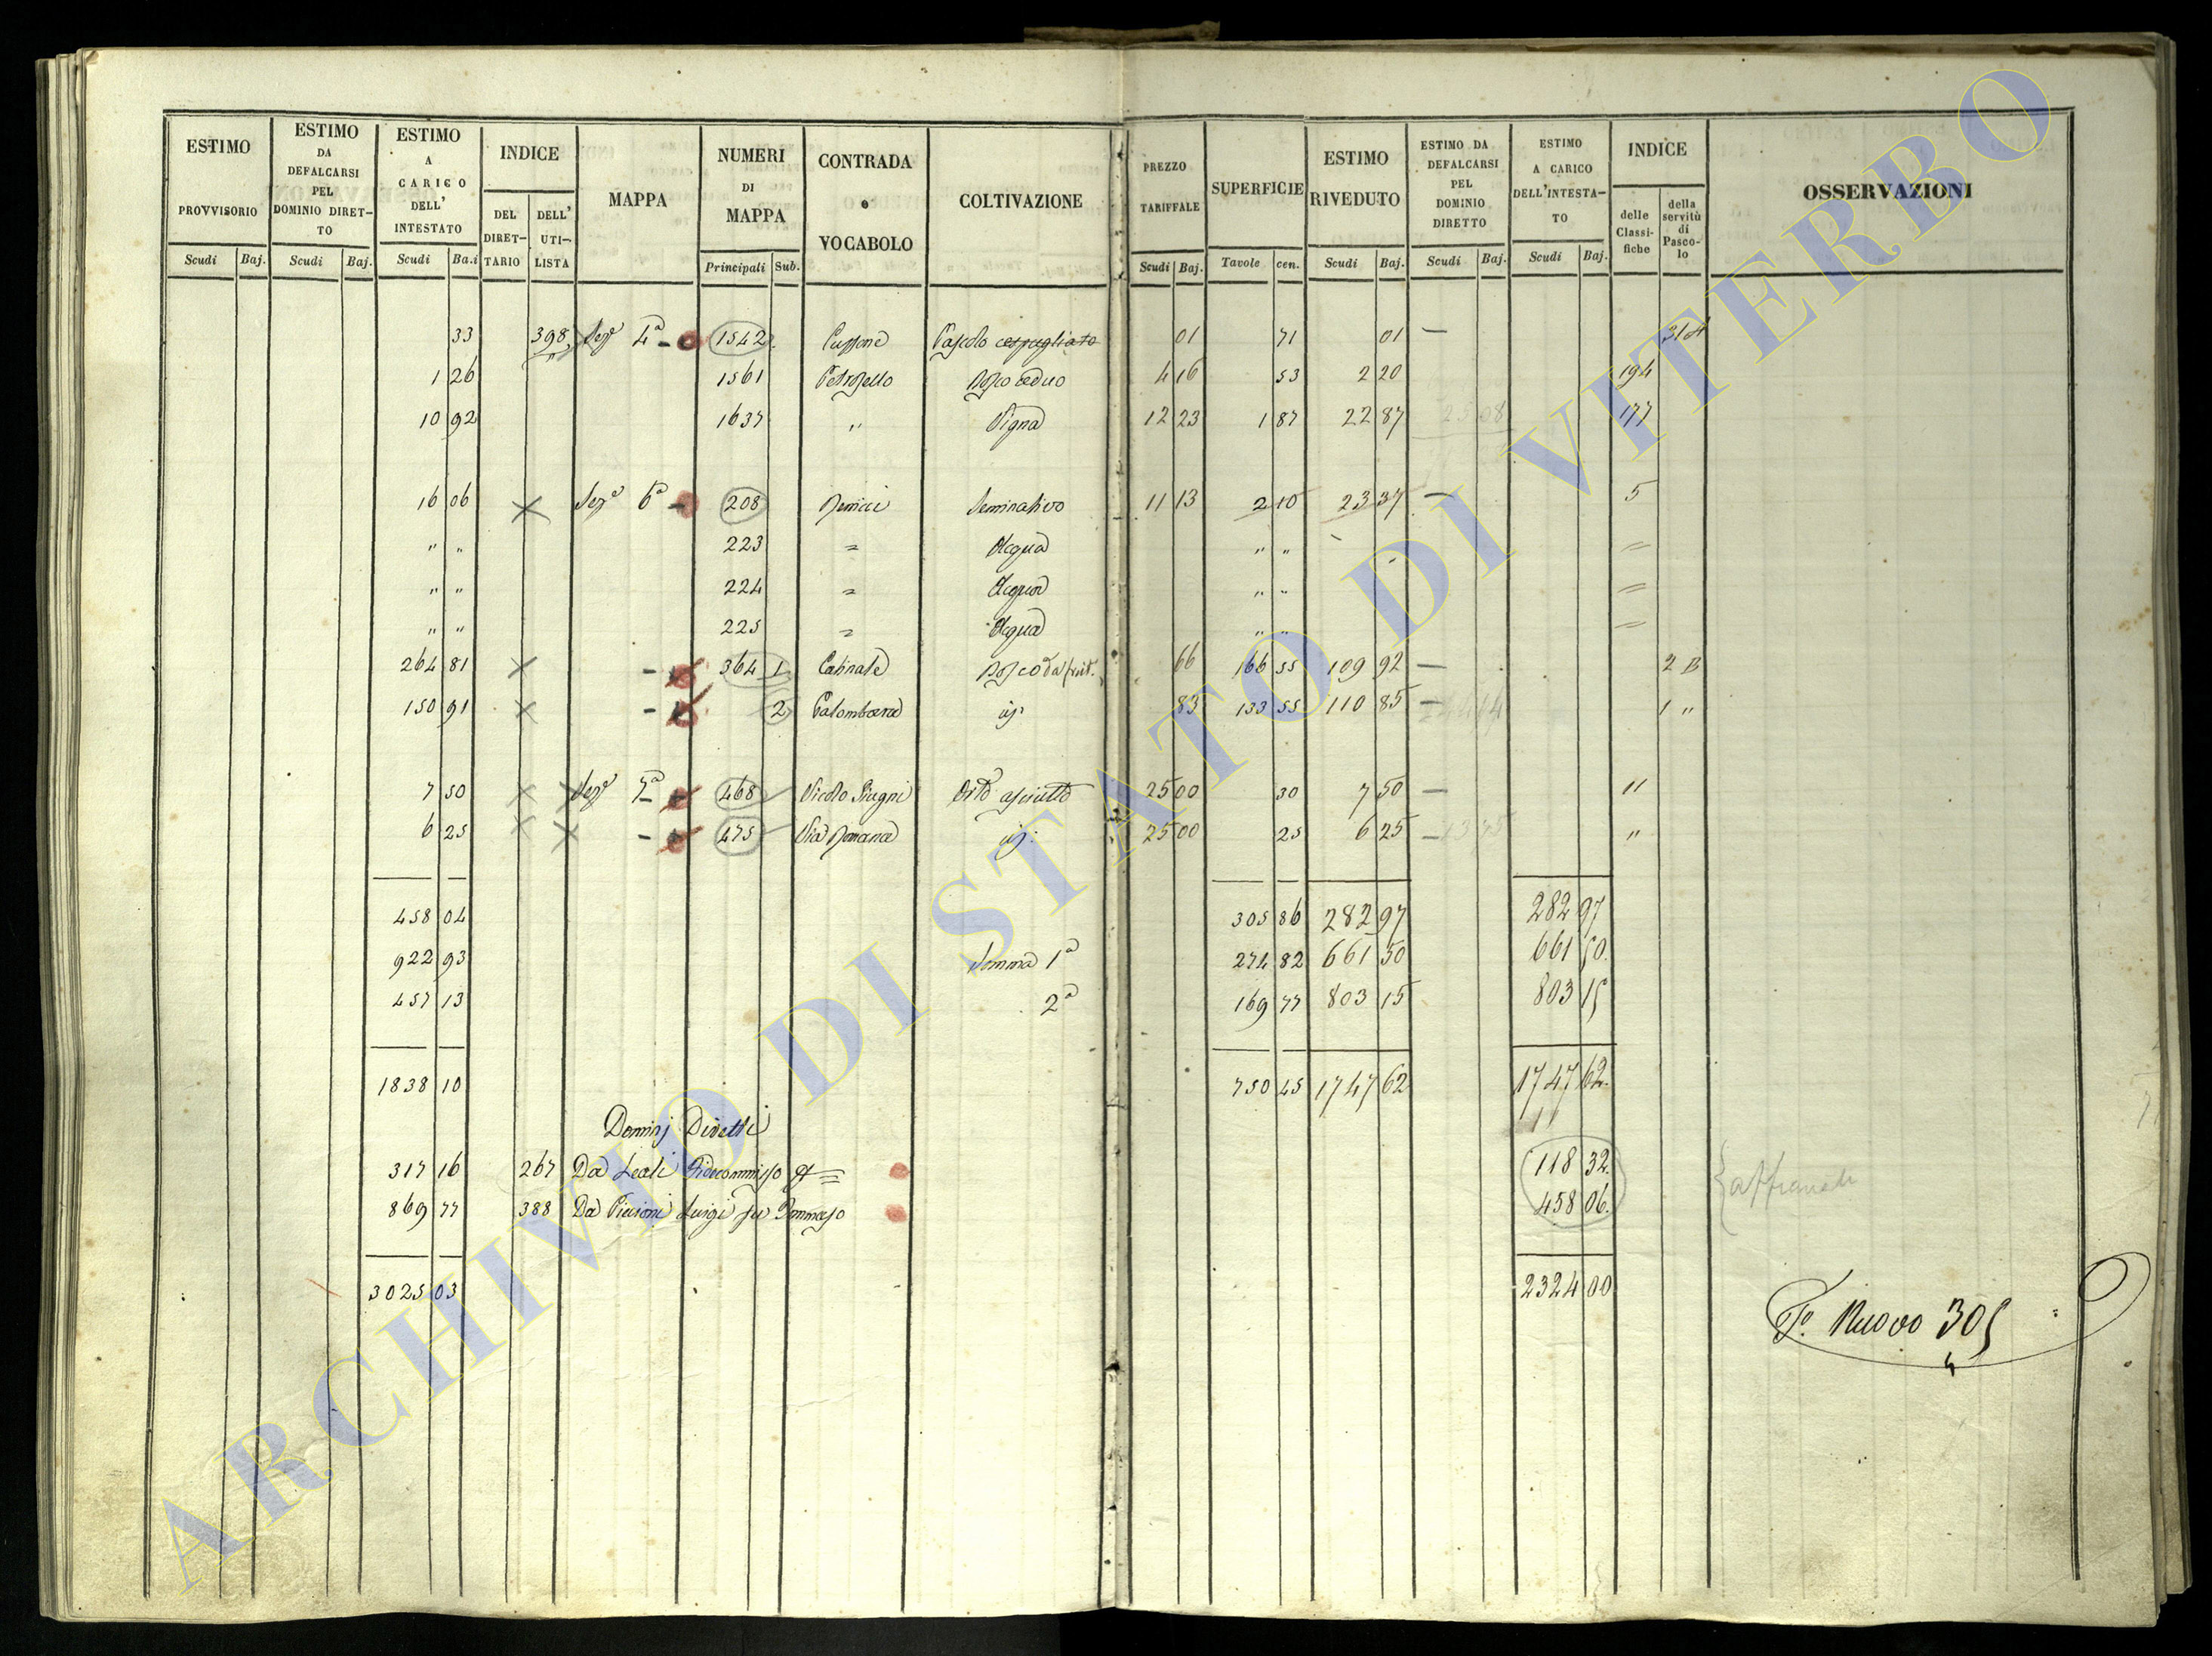 ESTIMO PROVVISORIO
ESTIMO DA DEFALCARSI PEL DOMINIO DIRET-TO
ESTIMO A CARICO DELL' INTESTATO
INDICE
DEL DIRET-TARIO
DELL' UTI-LISTA
MAPPA
NUMERI DI MAPPA
CONTRADA e VOCABOLO
COLTIVAZIONE
PREZZO TARIFFALE
SUPERFICIE
ESTIMO RIVEDUTO
ESTIMO DA DEFALCARSI PEL DOMINIO DIRETTO
ESTIMO A CARICO DELL'INTESTA-TO
INDICE
delle Classi-fiche
della servitù di Pasco-lo
OSSERVAZIONI
Scudi Baj. Scudi Baj. Scudi Ba.i Principali Sub. Scudi Baj. Tavole cen. Scudi Baj. Scudi Baj. Scudi Baj.
33 398 Sez 4a 1542 Pascolo cespugliato 01 71 01 —
1 26 1561 Bosco ceduo 4 16 53 2 20 194
10 92 1637 " Vigna 12 23 1 87 22 87 177
16 06 Sez 6a 208 Seminativo 11 13 2 10 23 37 — 5
" " 223 = Acqua " "
" " 224 = Acqua " "
" " 225 = Acqua " "
264 81 364 1 Bosco da frut. 66 166 55 109 92 — 2 B
150 91 2 Palombara 83 133 55 110 85 — 1 "
7 50 468 Orto asciutto 25 00 30 7 50 — 11
6 25 475 Via Romana 25 00 25 6 25 — "
458 04 305 86 282 97 282 97
922 93 Somma 1a 274 82 661 50 661 50
457 13 2a 169 77 803 15 803 15
1838 10 750 45 1747 62 1747 62
Dominj Diretti
317 16 267 Da Leali Fidecommisso 118 32
869 77 388 Da Luigi fu Tommaso 458 06
3025 03 2324 00
F. Nuovo 305
ARCHIVIO DI STATO DI VITERBO